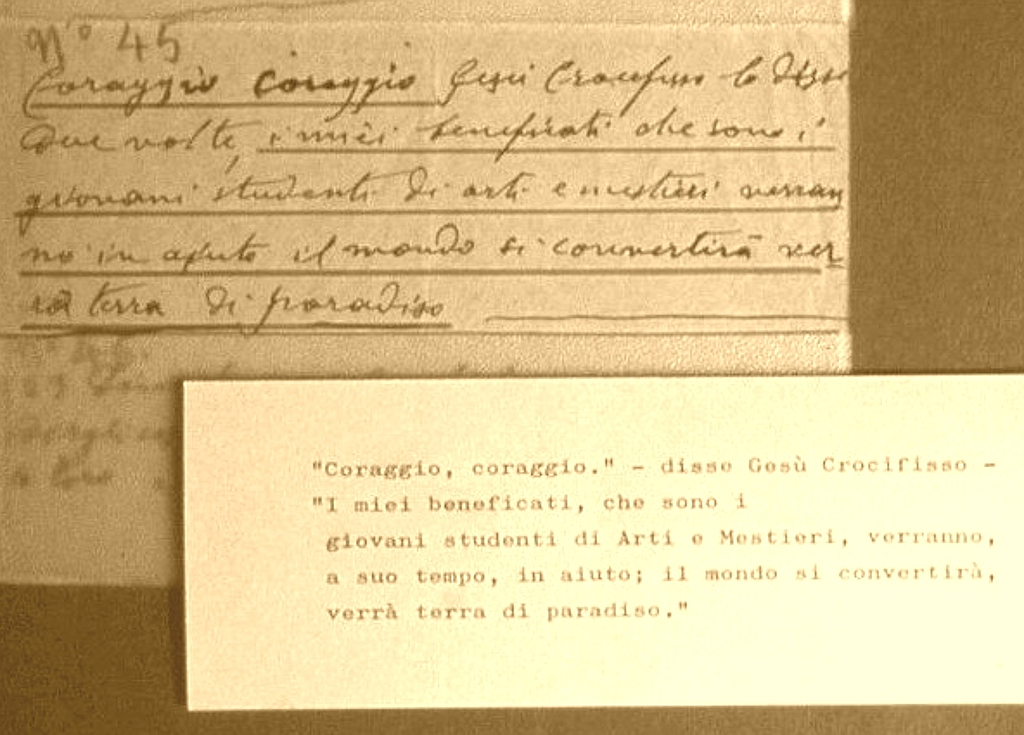 N° 45
Coraggio coraggio Gesù Crocefisso lo disse
due volte, i miei beneficati che sono i
giovani studenti di arti e mestieri verran
no in ajuto il mondo si convertirà ver
rà terra di paradiso
"Coraggio, coraggio." - disse Gesù Crocifisso -
"I miei beneficati, che sono i
giovani studenti di Arti e Mestieri, verranno,
a suo tempo, in aiuto; il mondo si convertirà,
verrà terra di paradiso."